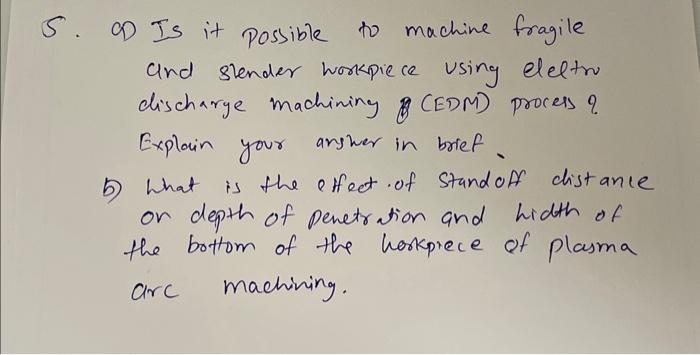 5. a) Is it possible to machine fragile
and slender workpiece using electro
discharge machining (EDM) process ?
Explain your answer in brief.
b) What is the effect of Standoff distance
on depth of penetration and width of
the bottom of the workpiece of plasma
arc machining.